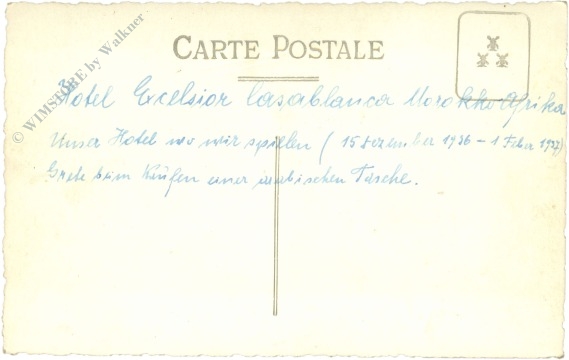 CARTE POSTALE
Hotel Excelsior Casablanca Morokko Afrika
Unser Hotel wo wir spielen (15 Dezember 1936 - 1 Feber 1937)
Grete beim Kaufen einer arabischen Tasche.
© WIMSTORE by Walkner